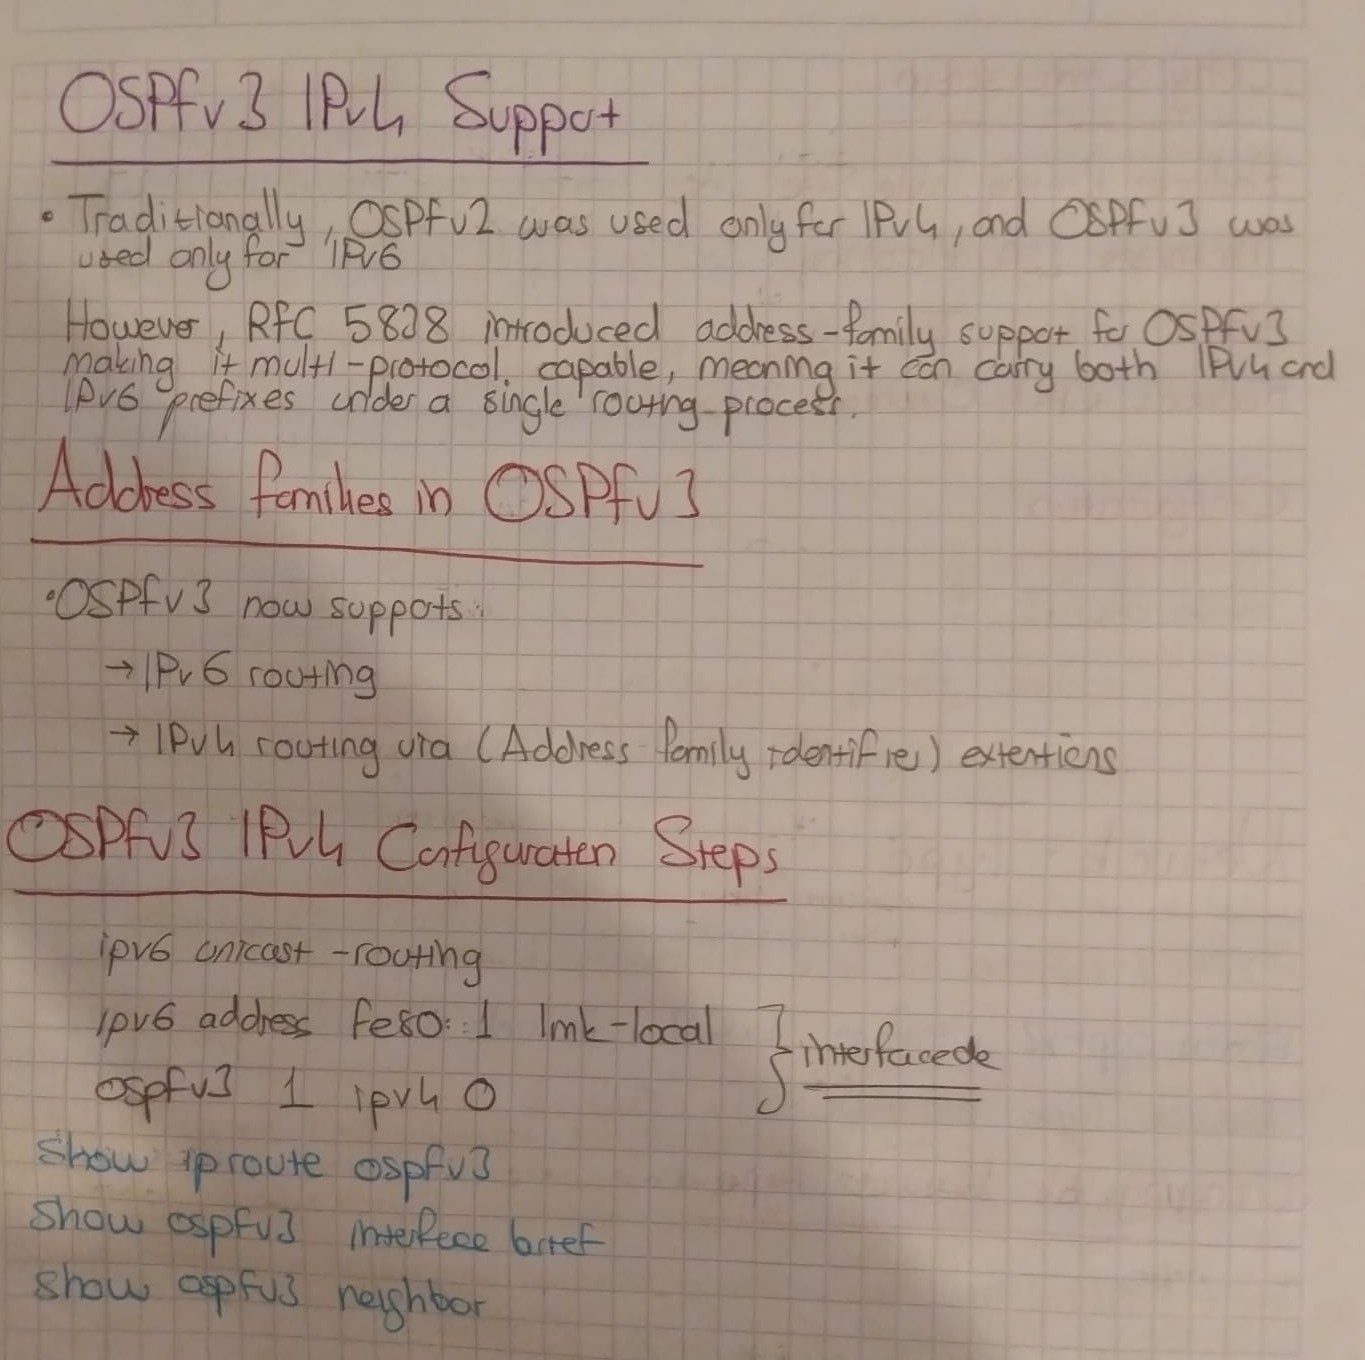 OSPFv3 IPv4 Support
• Traditionally, OSPFv2 was used only for IPv4, and OSPFv3 was
used only for IPv6
However, RFC 5838 introduced address-family support for OSPFv3
making it multi-protocol capable, meaning it can carry both IPv4 and
IPv6 prefixes under a single routing process.
Address families in OSPFv3
• OSPFv3 now supports:
→ IPv6 routing
→ IPv4 routing via (Address family identifier) extentions
OSPFv3 IPv4 Configuration Steps
ipv6 unicast-routing
ipv6 address fe80::1 link-local
ospfv3 1 ipv4 0
} interfacede
show ip route ospfv3
show ospfv3 interface brief
show ospfv3 neighbor